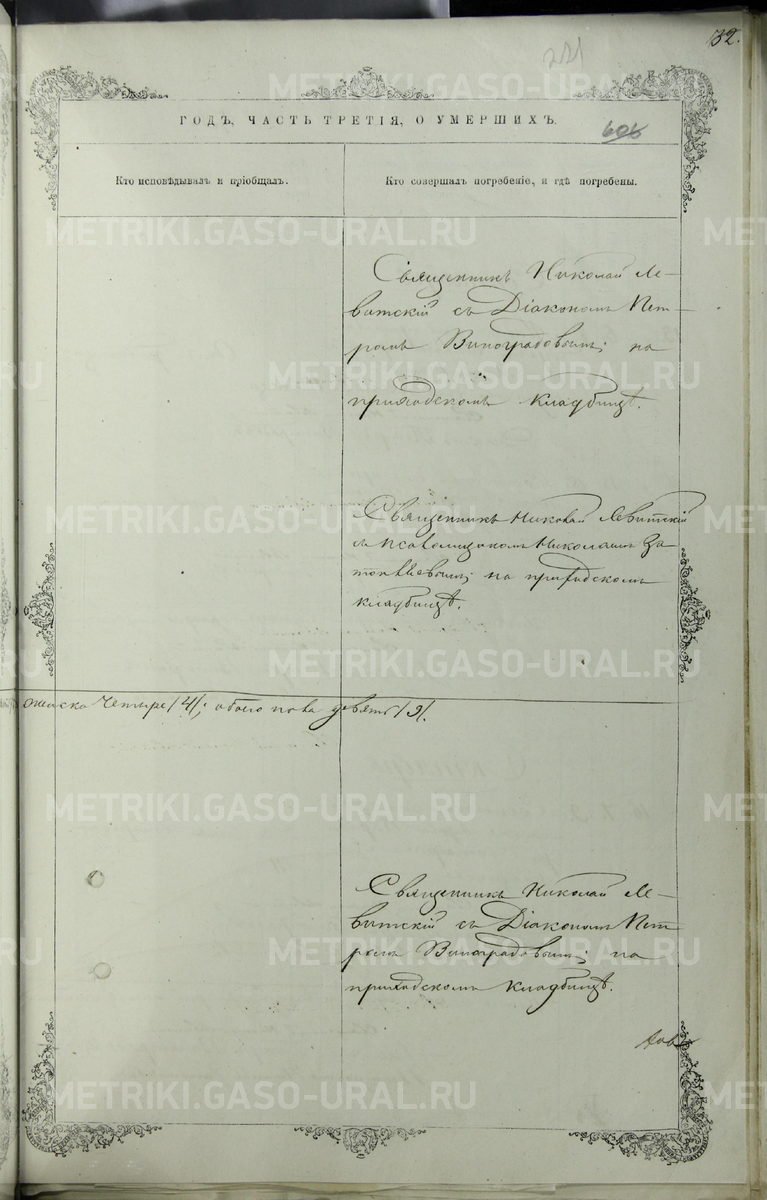 132.
221
ГОДЪ, ЧАСТЬ ТРЕТІЯ, О УМЕРШИХЪ.
606
Кто исповѣдывалъ и пріобщалъ.
Кто совершалъ погребеніе, и гдѣ погребены.
Священникъ Николай Ле-
витскій съ Діакономъ Пет-
ромъ Виноградовымъ; на
приходскомъ кладбищѣ.
Священникъ Николай Левитскій
съ псаломщикомъ Николаемъ
на приходскомъ
кладбищѣ.
женска четыре /4/; обоего пола девять /9/.
Священникъ Николай Ле-
витскій съ Діакономъ Пет-
ромъ Виноградовымъ; на
приходскомъ кладбищѣ.
METRIKI.GASO-URAL.RU